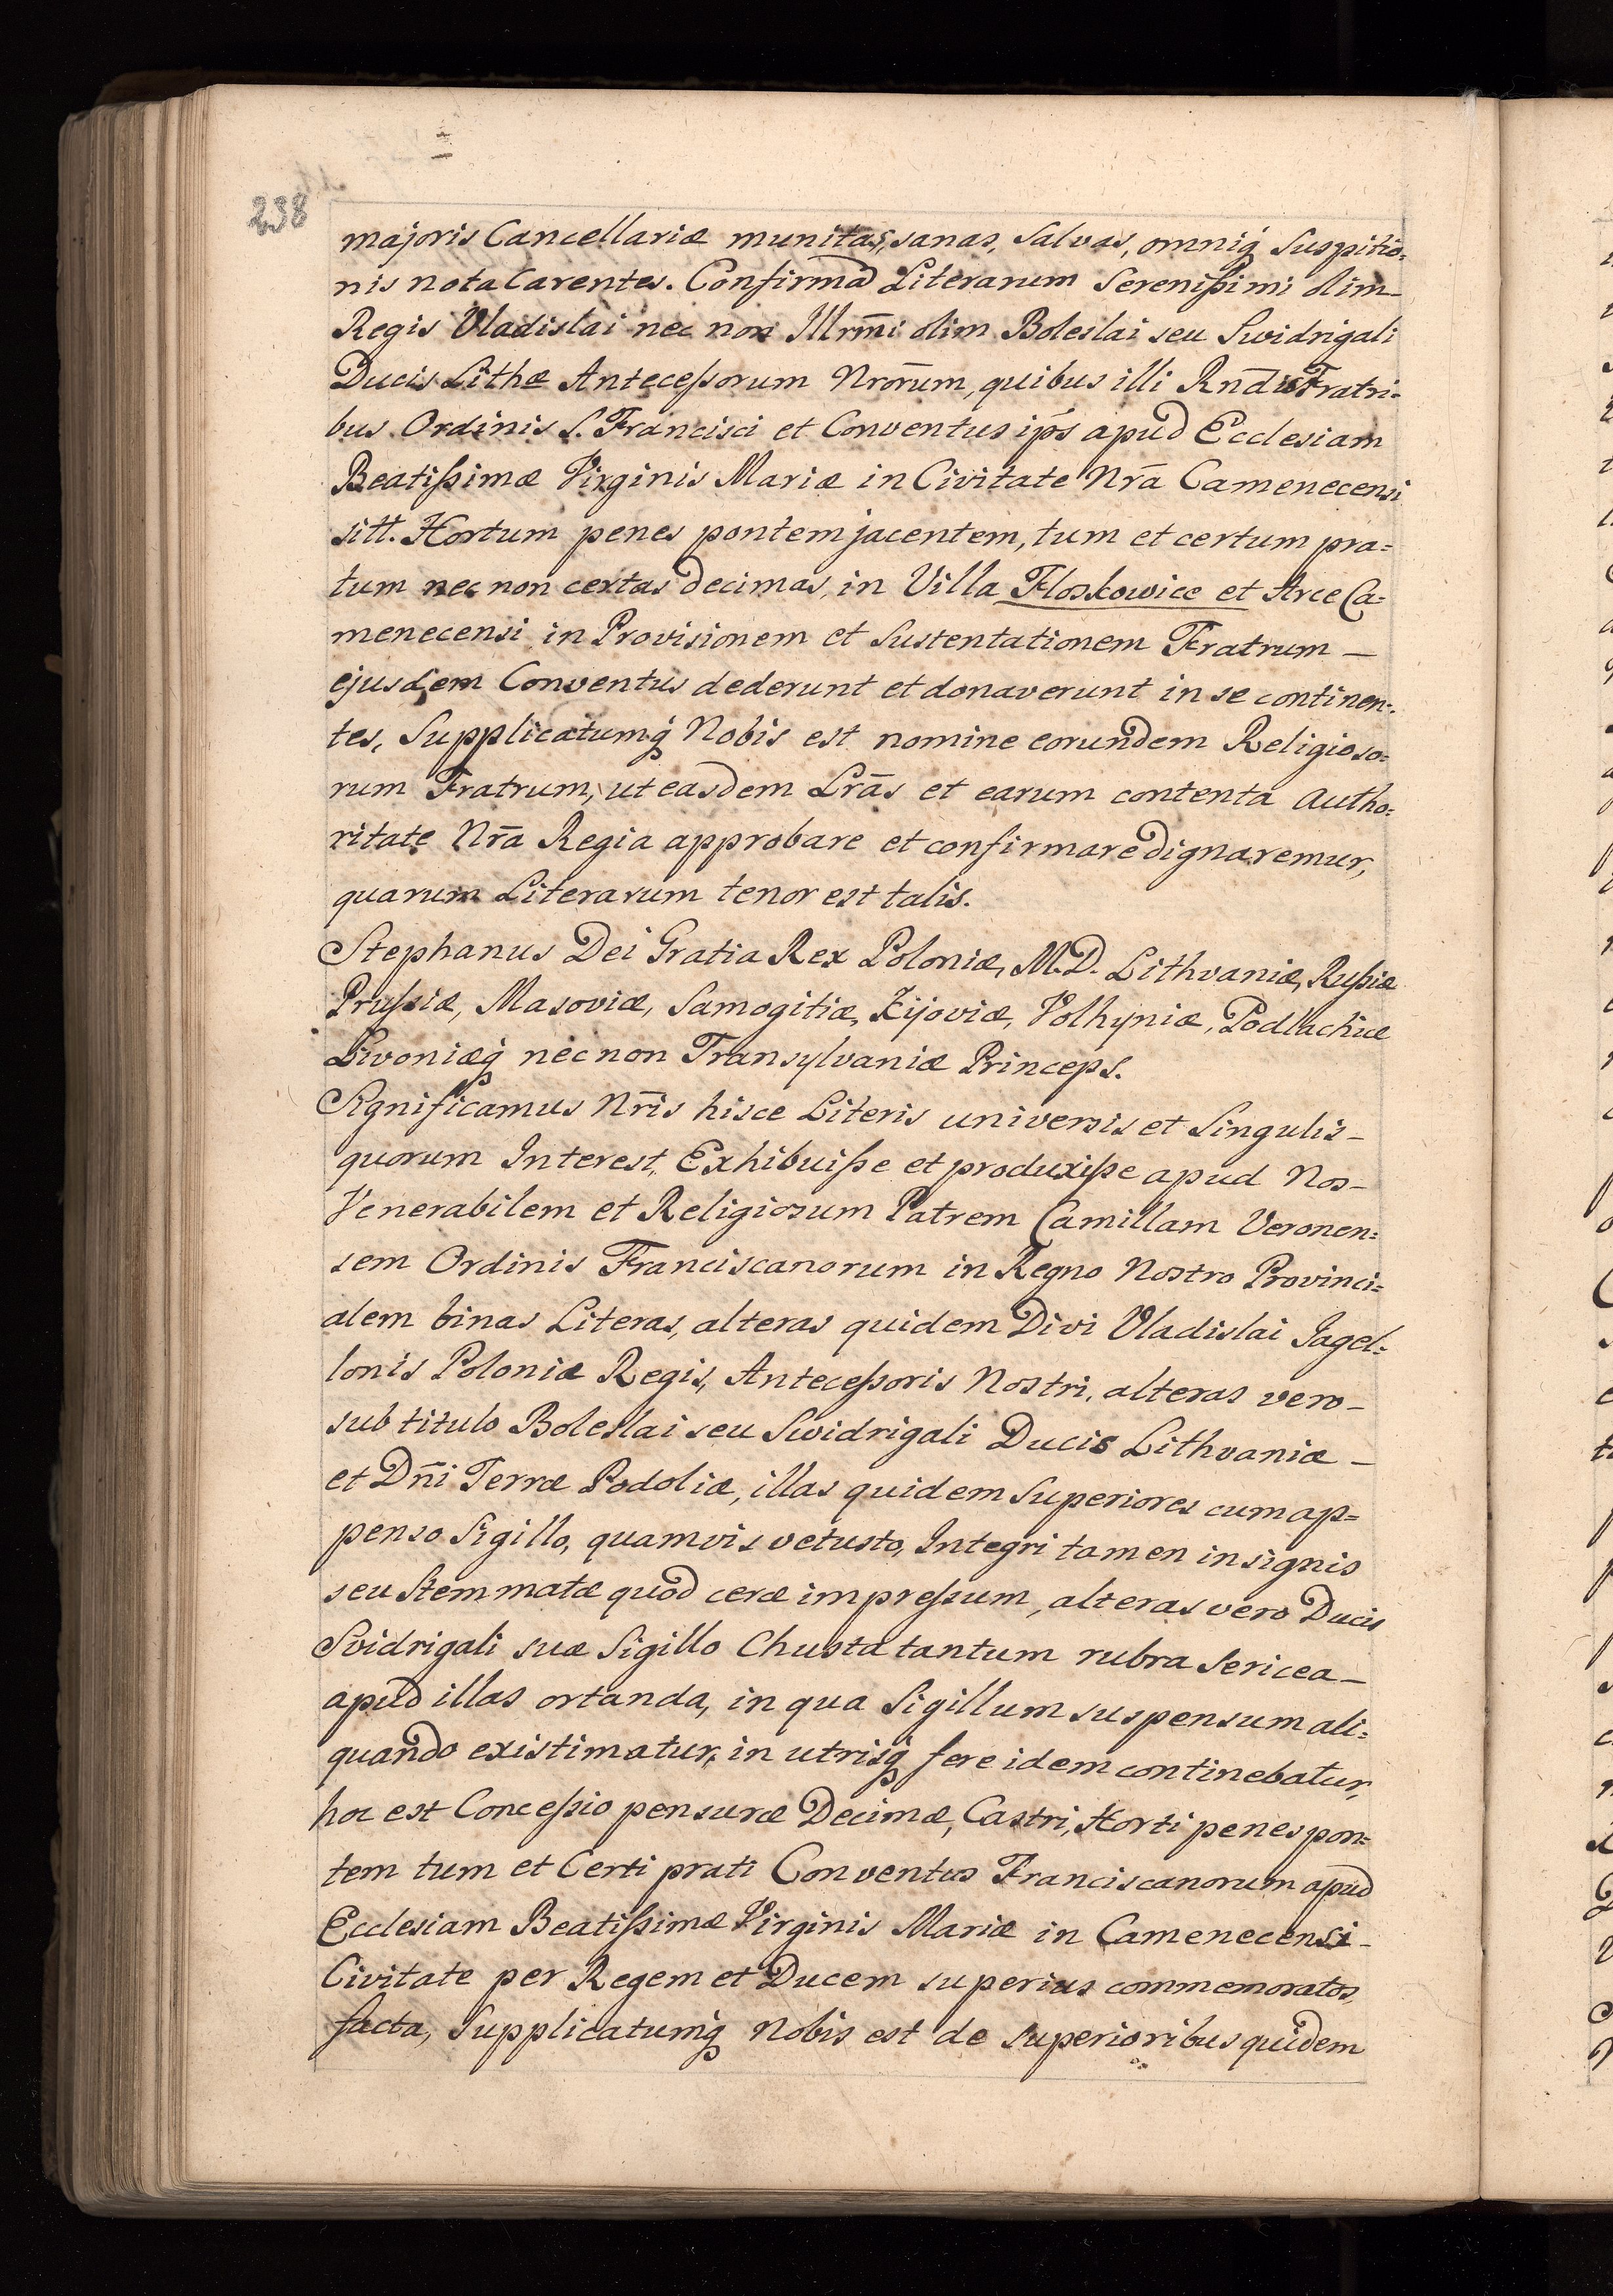 238
majoris Cancellariæ munitas, sanas, Salvas, omniq́ Suspitio=
nis nota Carentes. Confirmað Literarum Serenißimi olim_
Regis Vladislai nec non Illrm̃i olim Boleslai seu Swidrigali
Ducis Lithæ Anteceßorum Nror̃um, quibus illi Rnd̃is Fratri=
bus Ordinis S. Francisci et Conventus ip̃s apud Ecclesiam
Beatißimæ Virginis Mariæ in Civitate Nrã Camenecensi
sitt. Hortum penes pontem jacentem, tum et certum pra=
tum nec non certas decimas, in Villa Floskowice et Arce Ca=
menecensi in Provisionem et Sustentationem Fratrum_
ejusdem Conventus dederunt et donaverunt in se continen=
tes, Supplicatumq́ Nobis est nomine eorundem Religioso=
rum Fratrum, ut easdem Lrãs et earum contenta Autho=
ritate Nrã Regia approbare et confirmare dignaremur,
quarum Literarum tenor est talis.
Stephanus Dei Gratia Rex Poloniæ, M.D. Lithvaniæ, Rußiæ
Prußiæ, Masoviæ, Samogitiæ, Kijoviæ, Volhyniæ, Podlachiæ
Livoniæq́ nec non Transylvaniæ Princeps.
Significamus Nrĩs hisce Literis universis et Singulis_
quorum Interest, Exhibuiße et produxiße apud Nos_
Venerabilem et Religiosum Patrem Camillam Veronen=
sem Ordinis Franciscanorum in Regno Nostro Provinci=
alem binas Literas, alteras quidem Divi Vladislai Jagel=
lonis Poloniæ Regis, Anteceßoris Nostri, alteras vero_
sub titulo Boleslai seu Swidrigali Ducis Lithvaniæ_
et Dñi Terræ Podoliæ, illas quidem Superiores cum ap=
penso Sigillo, quamvis vetusto, Integri tamen insignis
seu Stemmatæ quod ceræ impreßum, alteras vero Ducis
Svidrigali suæ Sigillo Chusta tantum rubra Sericea_
apud illas ortanda, in qua Sigillum suspensum ali=
quando existimatur, in utrisq́ fere idem continebatur,
hoc est Conceßio pensuræ Decimæ, Castri, Horti penes pon=
tem tum et Certi prati Conventus Franciscanorum apud
Ecclesiam Beatißimæ Virginis Mariæ in Camenecensi_
Civitate per Regem et Ducem superius commemoratos,
facta, Supplicatumq́ Nobis est de superioribus quidem